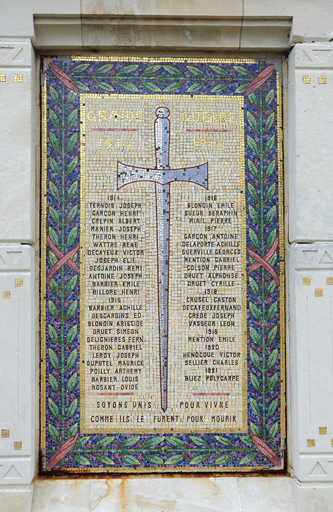 GRANDE GUERRE
1914
TERNOIS JOSEPH
GARÇON HENRI
CREPIN ALBERT
MANIER JOSEPH
THERON HENRI
WATTRE RENE
DECAYEUX VICTOR
JOSEPH ELI
DESJARDIN REMI
ANTOINE JOSEPH
BARBIER EMILE
BILLORE HENRI
1915
BARBIER ACHILLE
DESJARDINS ED.
BLONDIN ARISTIDE
DRUET SIMEON
DELIGNIERES FERN.
THERON GABRIEL
LEROY JOSEPH
DUPUTEL MAURICE
POILLY ARTHEMY
BARBIER LOUIS
ROSANT OVIDE
1916
BLONDIN EMILE
SUEUR SERAPHIN
PIERRE
1917
GARÇON ANTOINE
DELAPORTE ACHILLE
GUERVILLE GEORGES
MENTION GABRIEL
COLSON PIERRE
DRUET ALPHONSE
DRUET CYRILLE
1918
CRUSEL GASTON
JOSEPH
VASSEUR LEON
1919
MENTION EMILE
1920
HENOCQUE VICTOR
SELLIER CHARLES
1921
BIJEZ POLYCARPE
SOYONS UNIS POUR VIVRE
COMME ILS LE FURENT POUR MOURIR